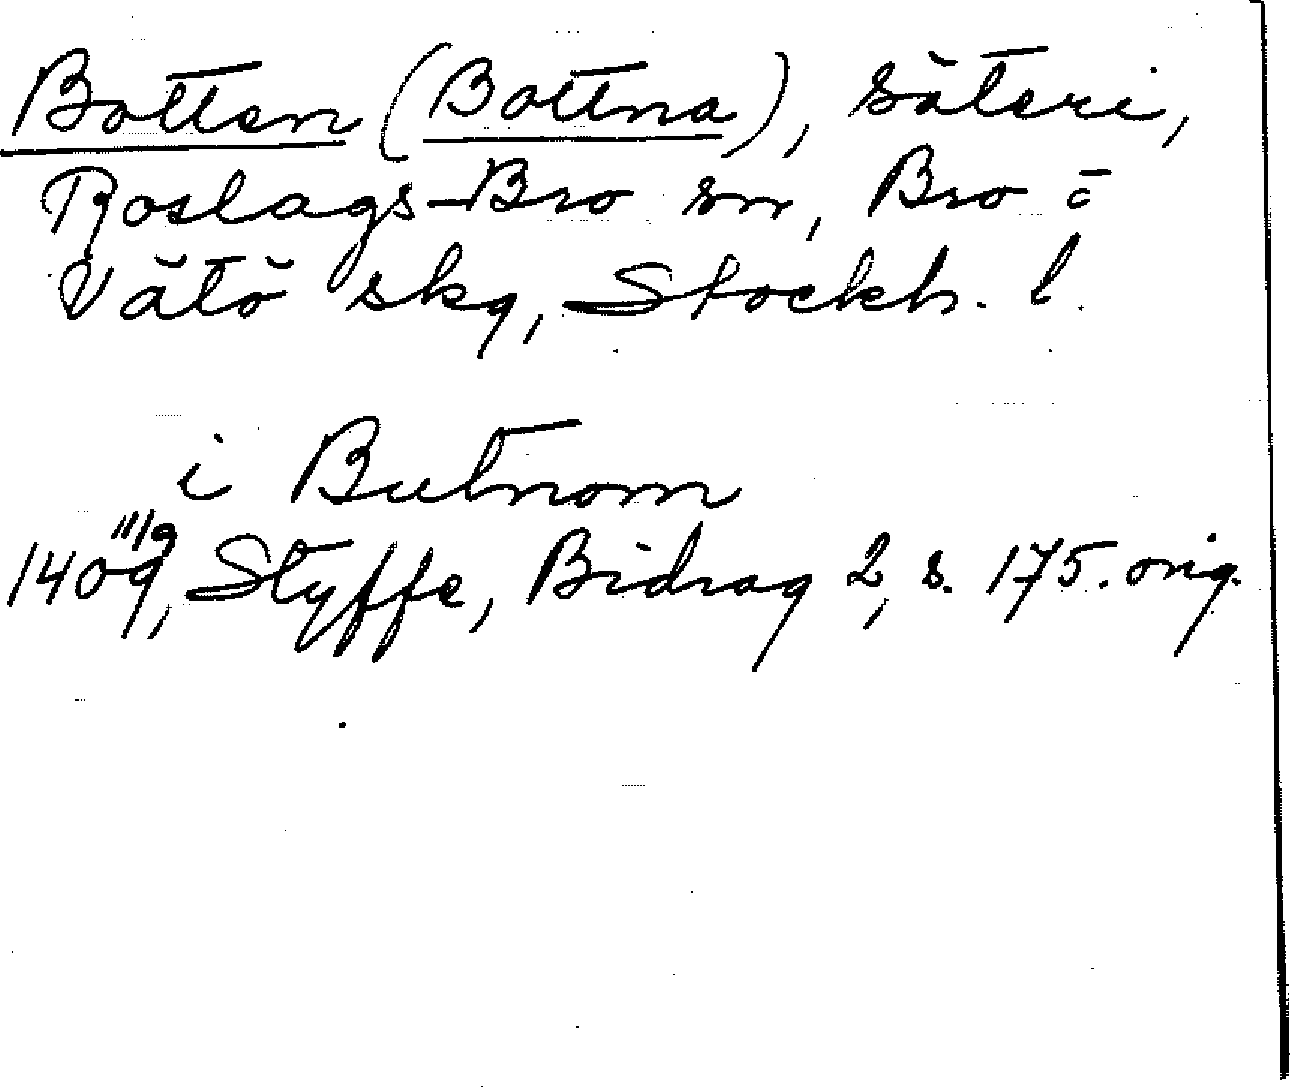 Botten (Bottna), säteri,
Roslags-Bro sn, Bro o
Vätö skg, Stockh. l.
i Butnom
1409 11/9, Styffe, Bidrag 2, s. 175. orig.